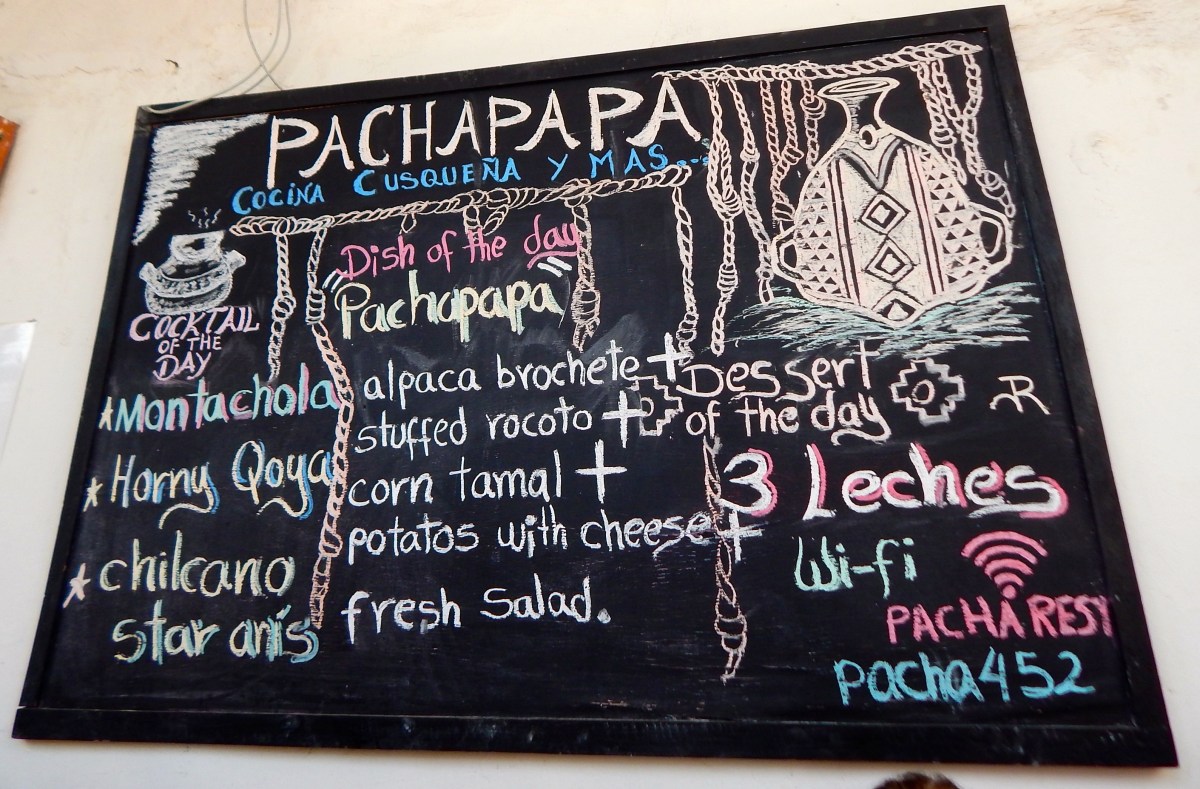 PACHAPAPA
COCINA CUSQUEÑA Y MAS...
COCKTAIL
OF THE
DAY
★Montachola
★Horny Qoya
★chilcano
star anís
Dish of the day
"Pachapapa"
alpaca brochete +
stuffed rocoto +
corn tamal +
potatos with cheese +
fresh Salad.
Dessert
of the day
3 Leches
Wi-fi
PACHA REST
pacha452